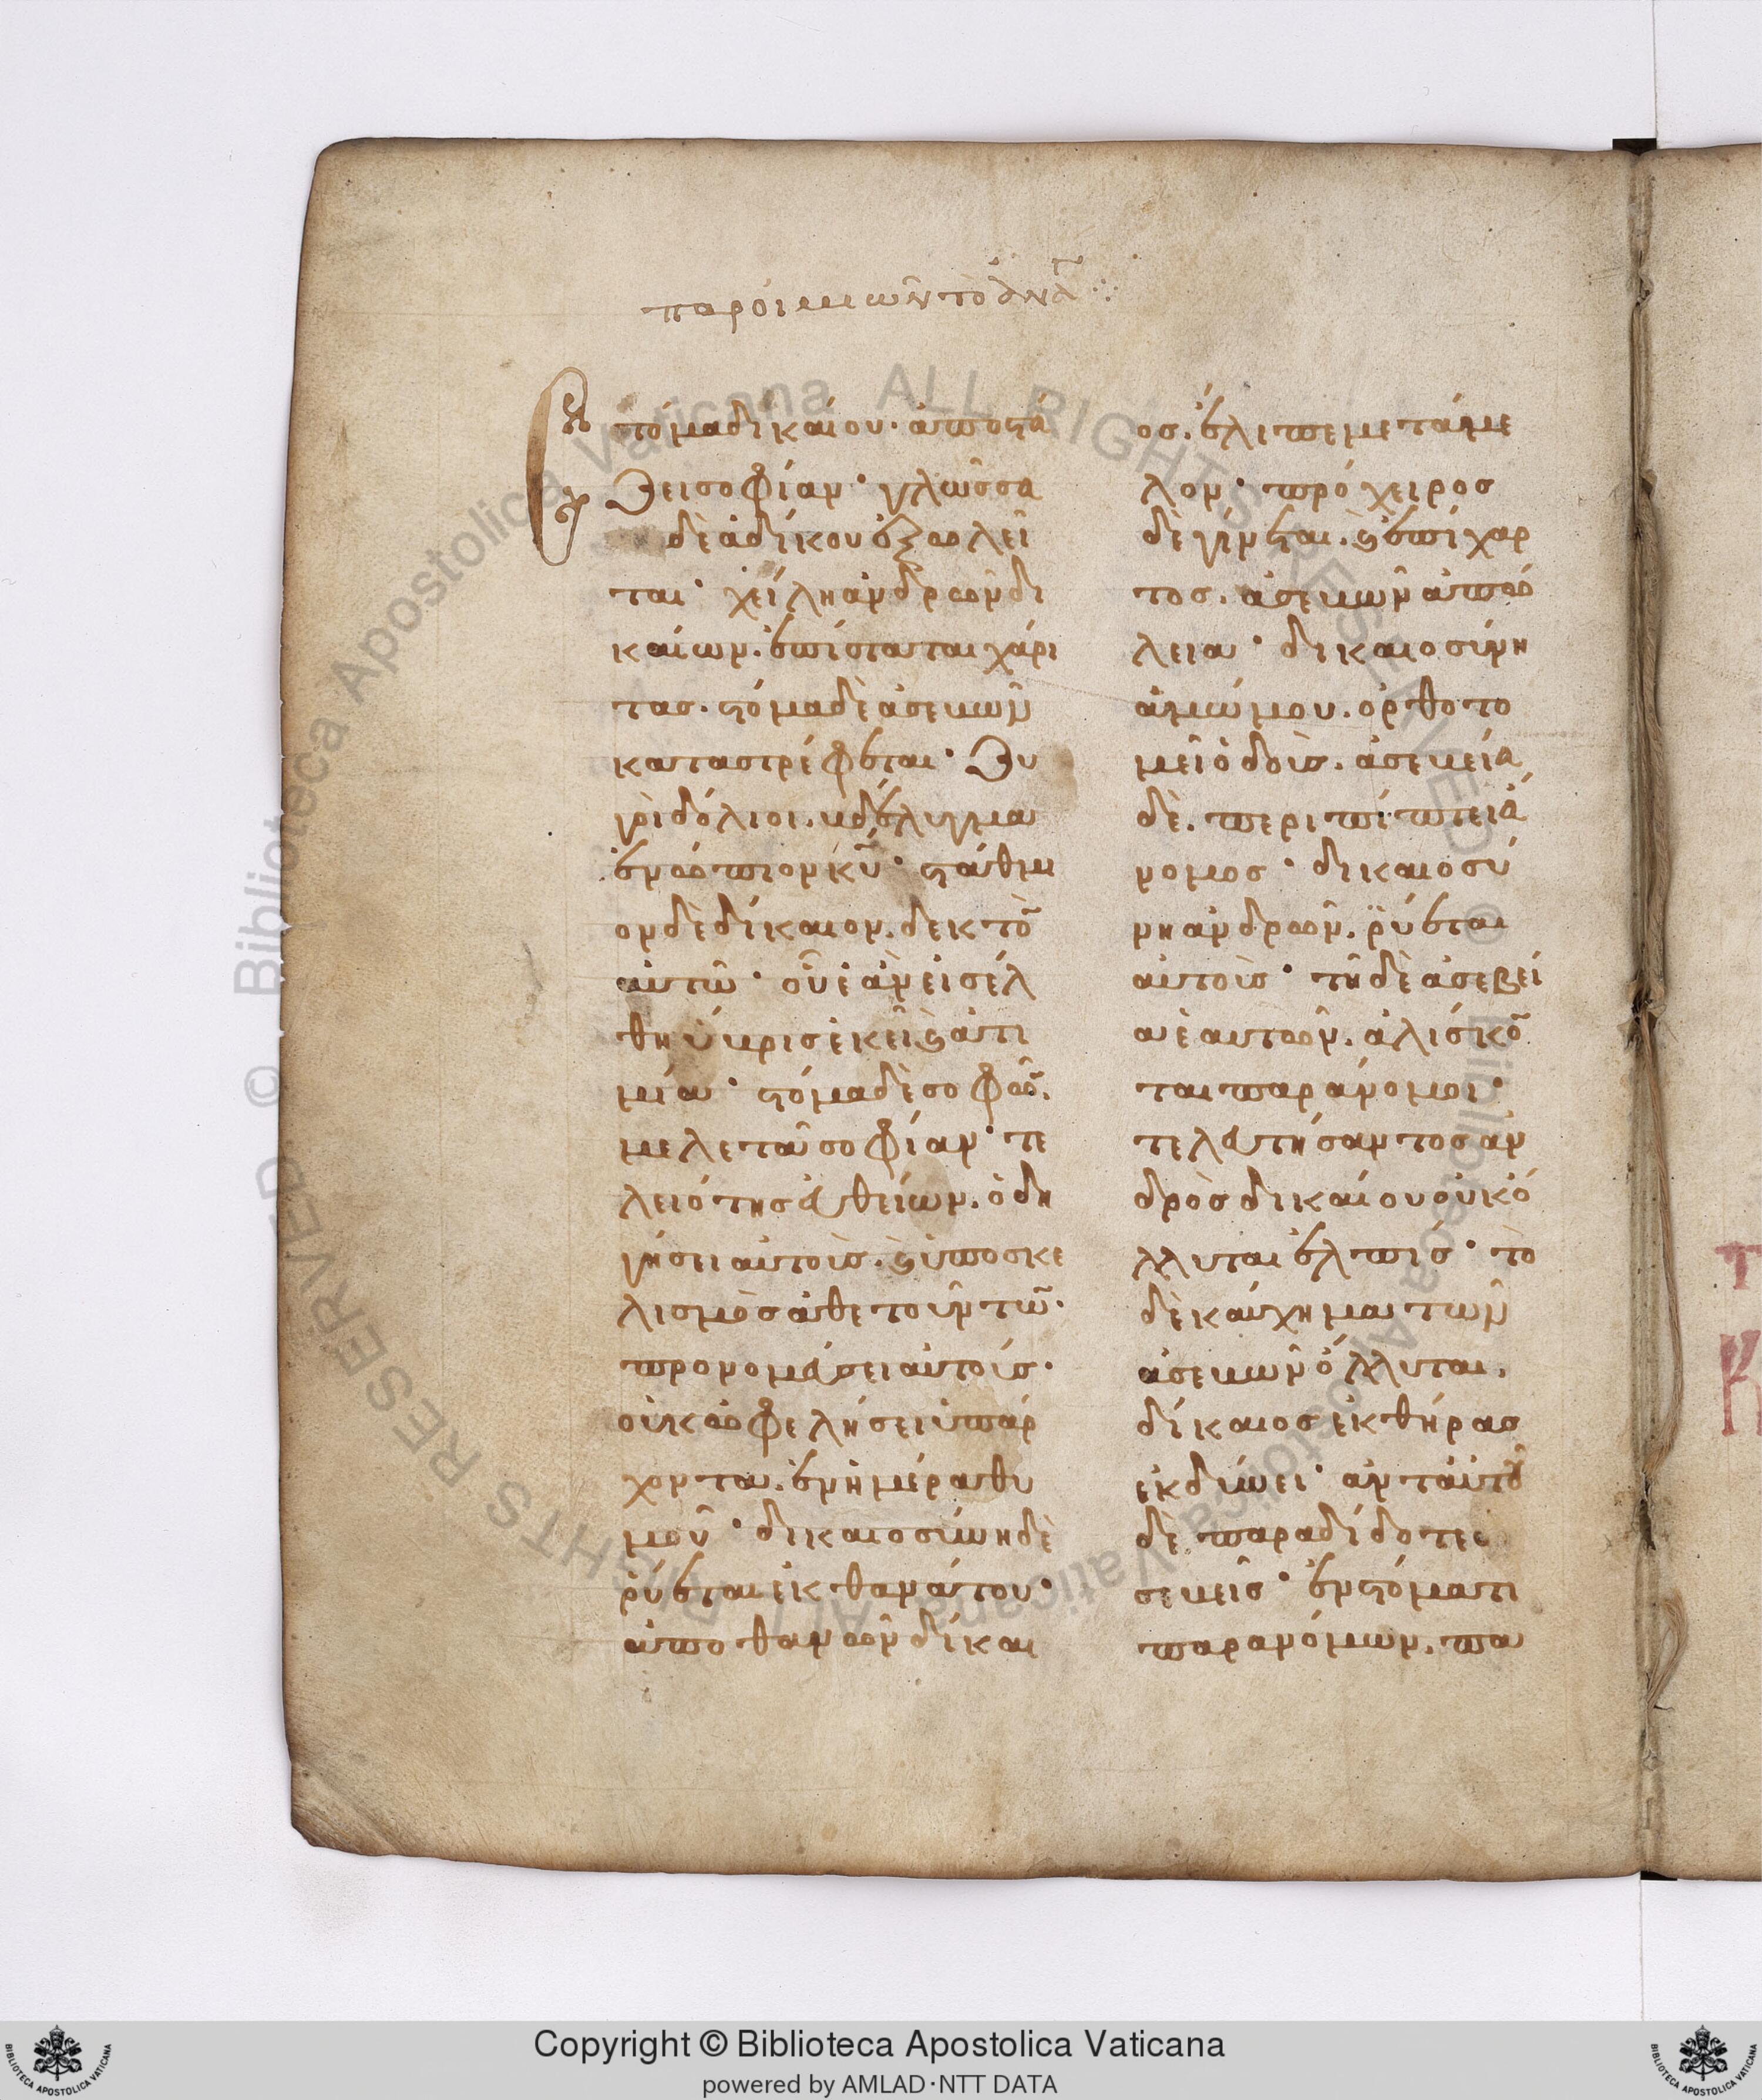 παροιμιῶν τὸ ἀνά
Στόμα δικαίου· ἀποστά
ζει σοφίαν· γλῶσσα
δὲ ἀδίκου ἐξωλεῖ
ται· χείλη ἀνδρῶν δι
καίων. ἐπίσταται χάρι
τας. στόμα δὲ ἀσεβῶν
καταστρέφεται· Ζυ
γοὶ δόλιοι. βδέλυγμα
ἐνώπιον κυ· στάθμι
ον δὲ δίκαιον. δεκτὸ
αὐτῶ· οὗ ἐὰν εἰσέλ
θη ὕβρις ἐκεῖ ϗ ἀτι
μία· στόμα δὲ σοφῶ.
μελετᾶ σοφίαν· τε
λειότης εὐθείων. ὁδη
γήσει αὐτοὺς. ϗ ὑποσκε
λισμὸς ἀθετούντω·
προνομεύσει αὐτούς.
οὐκ ὠφελήσει ὑπάρ
χοντα. ἐν ἡμέρα θυ
μοῦ· δικαιοσύνη δὲ
ῥύεται ἐκ θανάτου·
ἀποθανῶν δίκαι
ος. ἔλιπε μετάμε
λον· πρόχειρος
δὲ γίνεται. ϗ ἐπίχαρ
τος. ἀσεβῶν ἀπώ
λεια· δικαιοσύνη
ἀμώμου. ὀρθοτο
μεῖ ὁδοὺς. ἀσέβεια
δὲ. περιπίπτει ἀ
νομος· δικαιοσύ
νη ἀνδρῶν. ῥύεται
αὐτοὺς· τῆ δὲ ἀσεβεί
α ἑαυτῶν. ἁλίσκο
ται παράνομοι·
τελευτήσαντος ἀν
δρὸς δικαίου οὐκ ὄ
λλυται ἐλπίς· τὸ
δὲ καύχημα τῶν
ἀσεβῶν ὄλλυται.
δίκαιος ἐκ θήρας
ἐκδύνει· ἀντ' αὐτοῦ
δὲ παραδίδοτε
σεβεῖς· ἐν στόματι
παρανόμων. πα